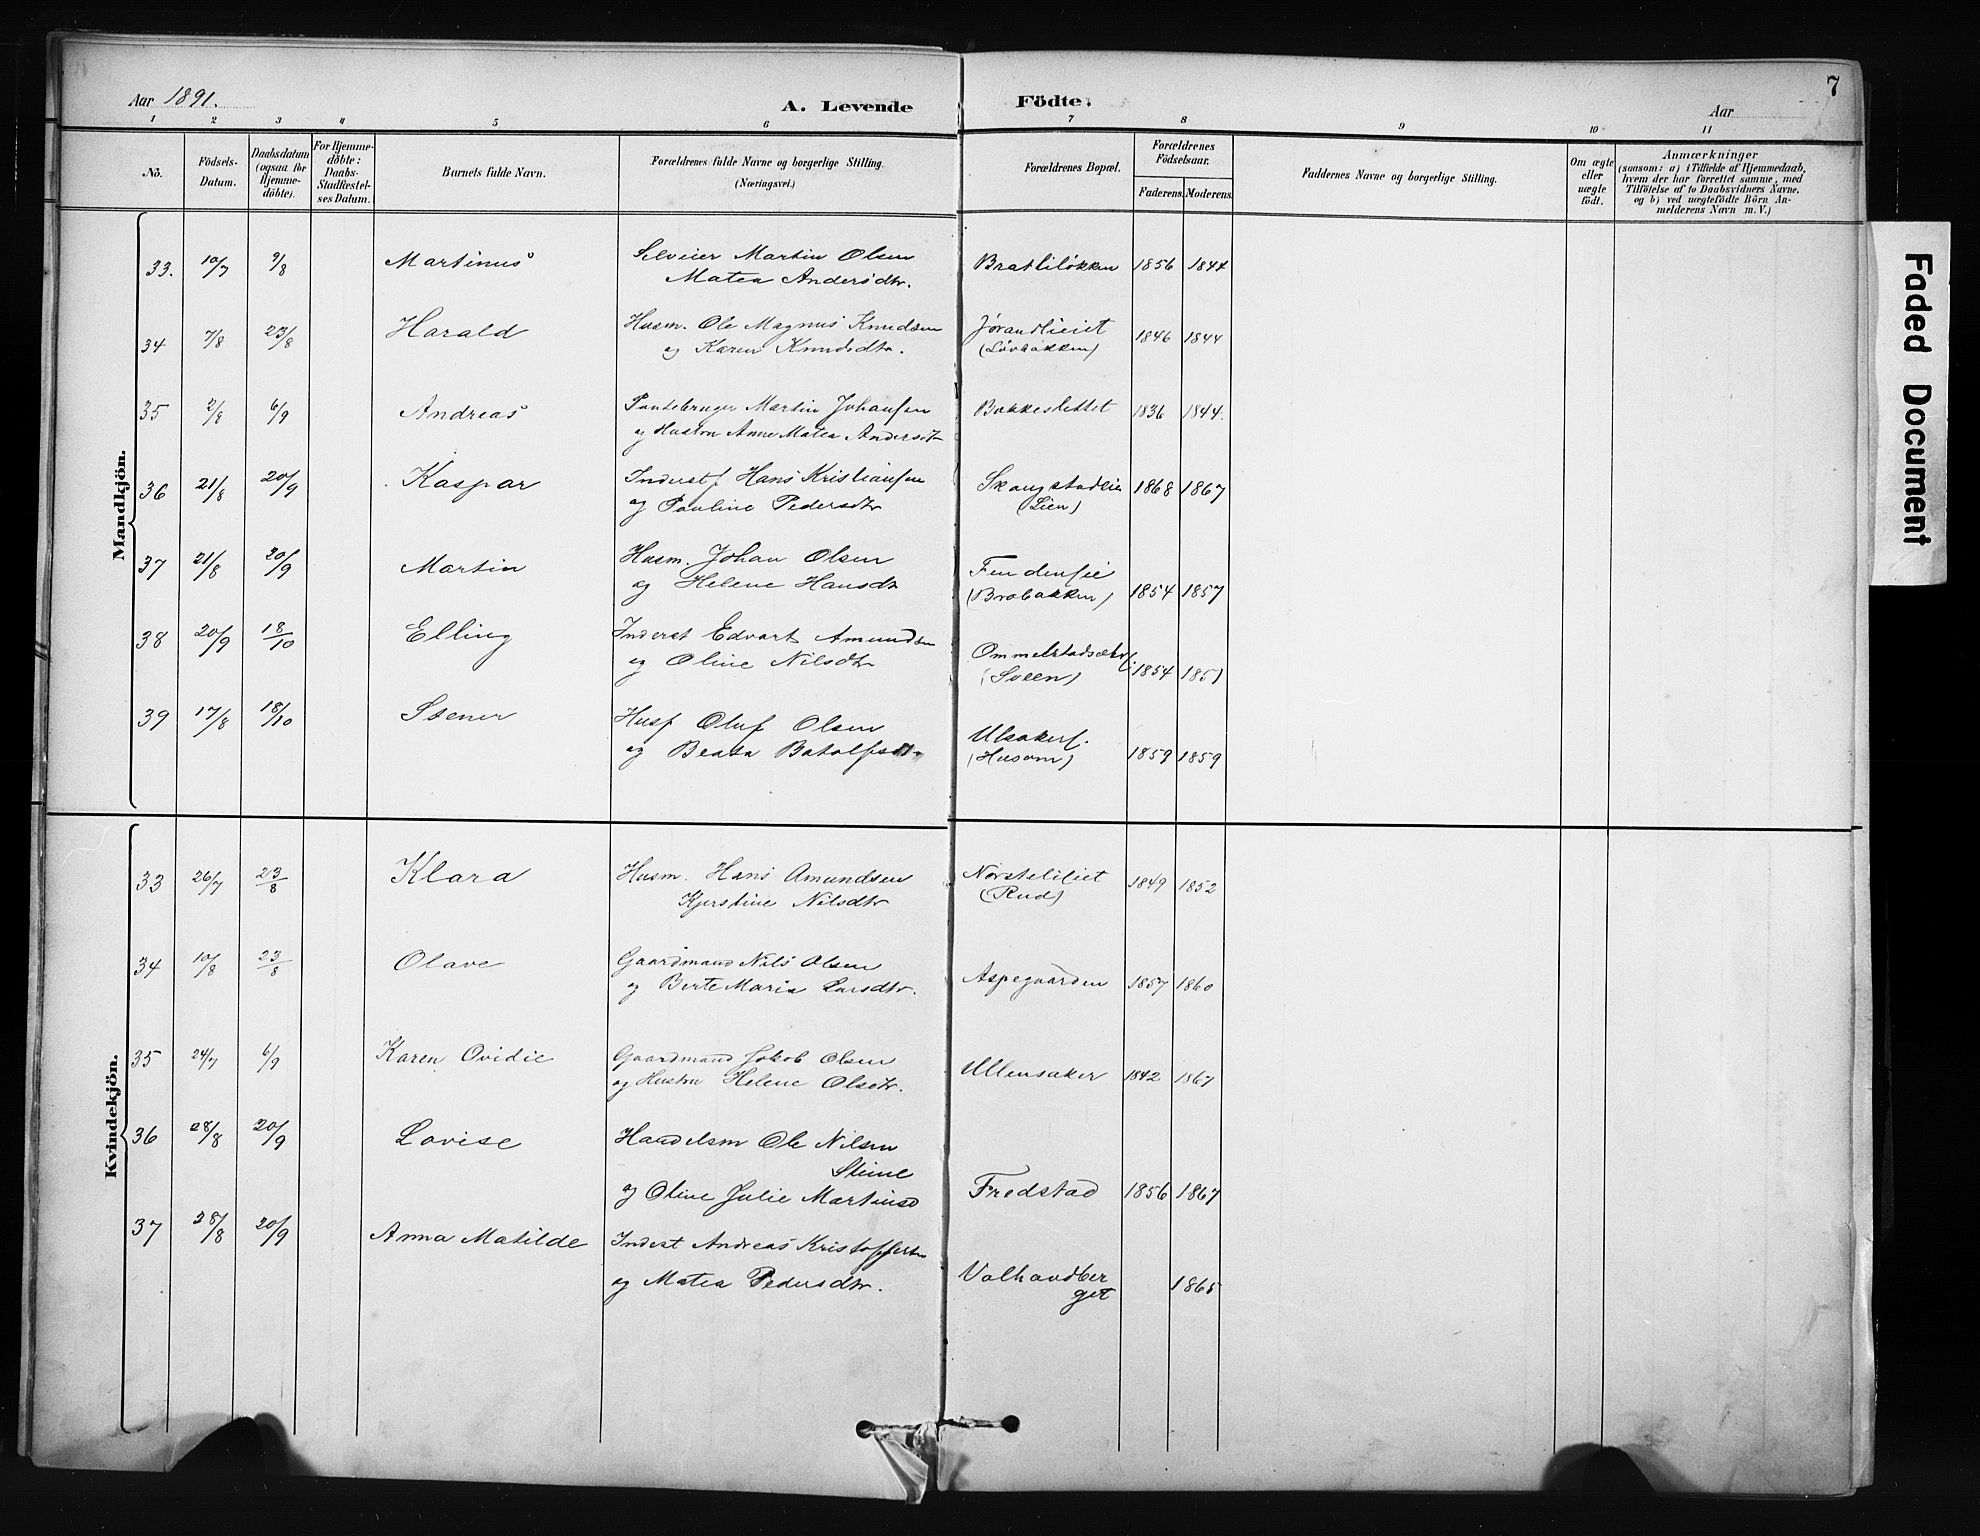 7
Aar 1891. A. Levende Födte. Aar
1 2 3 4 5 6 7 8 9 10 11
No. Födsels-Datum. Daabsdatum (ogsaa for Hjemme-döbte). For Hjemme-döbte: Daabs-Stadfæstel-ses Datum. Barnets fulde Navn. Forældrenes fulde Navne og borgerlige Stilling. (Næringsvei.) Forældrenes Bopæl. Forældrenes Födselsaar. Faderens. Moderens. Faddernes Navne og borgerlige Stilling. Om ægte eller uægte födt. Anmærkninger (saasom: a) i Tilfælde af Hjemmedaab, hvem der har forrettet samme, med Tilföielse af to Daabsvidners Navne. og b) ved uægtefödte Börn An-melderens Navn m. V.)
Mandkjön.
33. 10/7 9/8 Martinus Selveier Martin Olsen Bratliløkken 1856 1844
Matea Andersdtr.
34 7/8 23/8 Harald Husm. Ole Magnus Knudsen 1846 1844
og Karen Knudsdtr. (Løvbakken)
35 2/8 6/9 Andreas Martin Johansen Bakkeslettet 1836 1844.
og Hustru Anne Matea Andersdtr
36 21/8 20/9 Kaspar Inderstf Hans Kristiansen Skaugstadeie 1868 1867
og Pauline Pedersdtr (Lien)
37 21/8 20/9 Martin Husm. Johan Olsen 1854 1857
og Helene Hansdtr (Brobakken)
38 20/9 18/10 Elling Inderst Edvart Amundsen 1854 1851
og Oline Nilsdtr (Sveen)
39 17/8 18/10 Stener Husf Oluf Olsen Ulsakerf. 1859 1859
og Beata (Husom)
Kvindekjön.
33 26/7 23/8 Klara Husm. Hans Amundsen 1849 1852
Kjerstine Nilsdtr (Rud)
34 10/8 23/8 Olave Gaardmand Nils Olsen Aspegaarden 1857 1860
og Berte Maria Larsdtr.
35 24/7 6/9 Karen Ovidie Gaardmand Jakob Olsen Ullensaker 1842 1867
og Hustru Helene Olsdtr.
36 28/8 20/9 Lovise Handelsm Ole Nilsen
Stine
og Oline Julie Martinsd Fredstad 1856 1867
37 28/8 20/9 Anna Matilde Inderst Andreas Kristoffersen
og Matea Pedersdtr. Valhaudber 1865
get
Faded Document